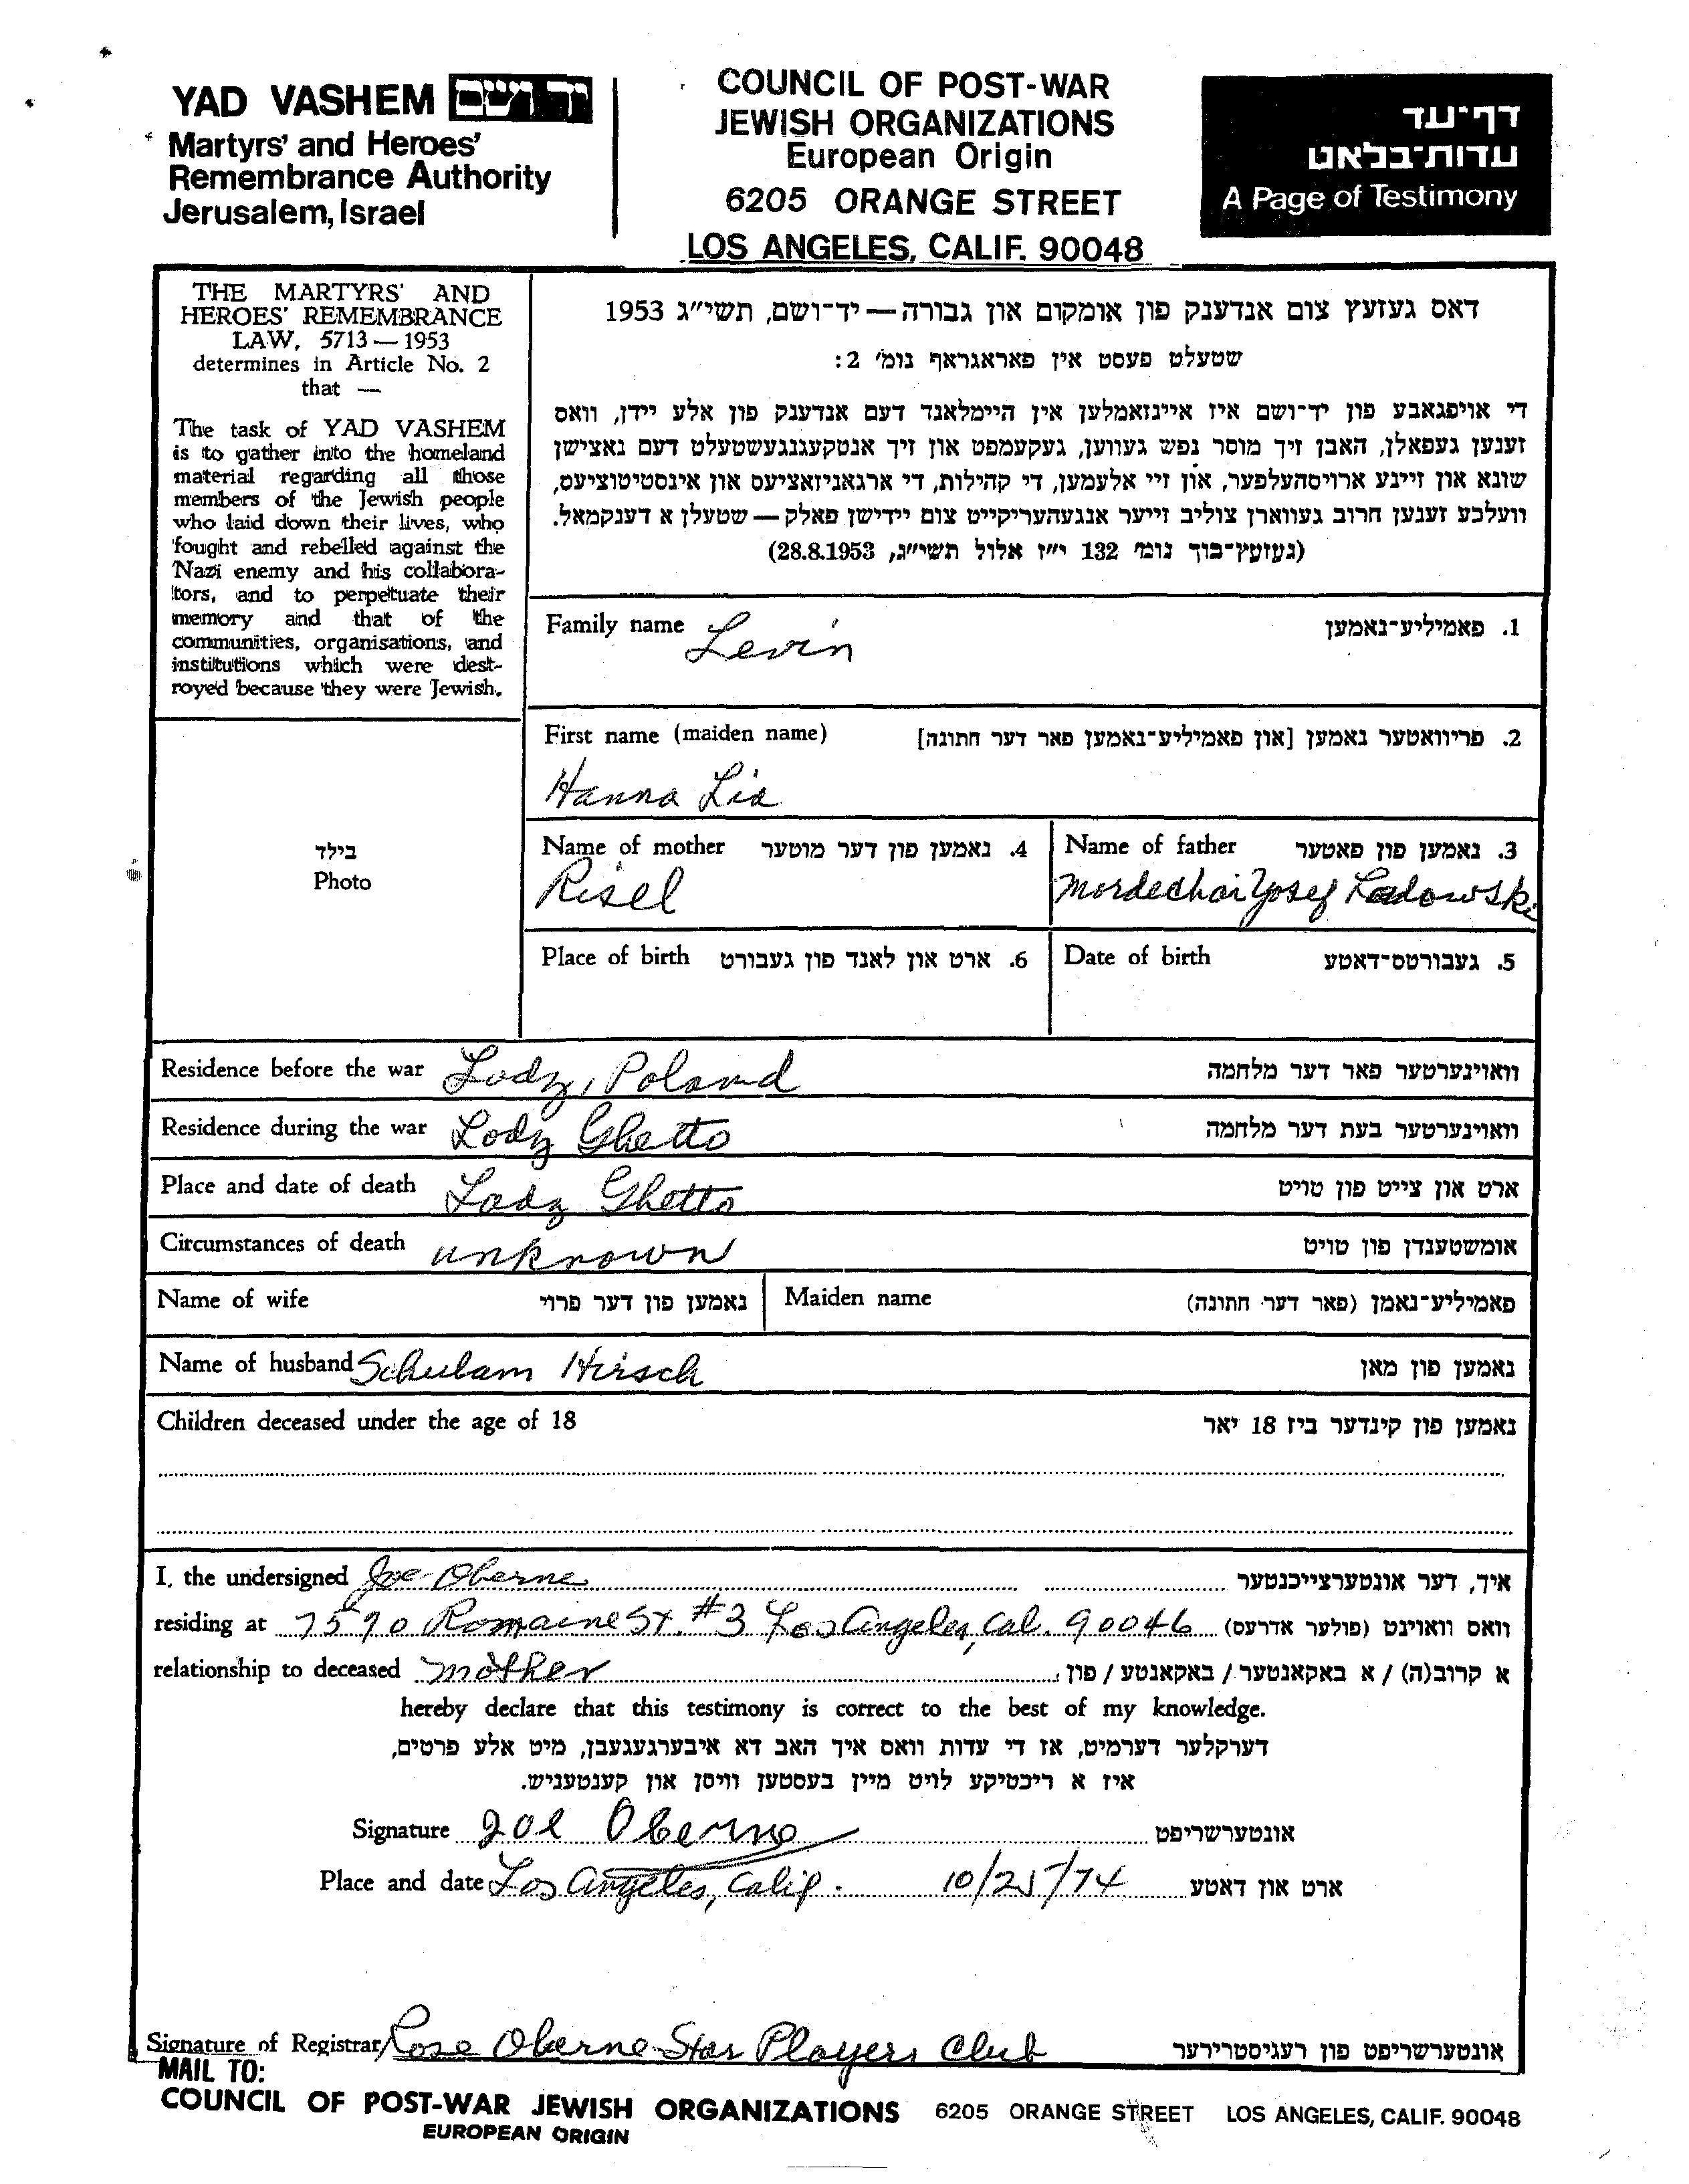 YAD VASHEM יד ושם
Martyrs' and Heroes'
Remembrance Authority
Jerusalem, Israel
COUNCIL OF POST-WAR
JEWISH ORGANIZATIONS
European Origin
6205 ORANGE STREET
LOS ANGELES, CALIF. 90048
דף־עד
עדות־בלאט
A Page of Testimony
THE MARTYRS' AND
HEROES' REMEMBRANCE
LAW, 5713 — 1953
determines in Article No. 2
that —
The task of YAD VASHEM
is to gather into the homeland
material regarding all those
members of the Jewish people
who laid down their lives, who
fought and rebelled against the
Nazi enemy and his collabora-
tors, and to perpetuate their
memory and that of the
communities, organisations, and
institutions which were dest-
royed because they were Jewish.
דאס געזעץ צום אנדענק פון אומקום און גבורה — יד־ושם, תשי״ג 1953
שטעלט פעסט אין פאראגראף נומ׳ 2:
די אויפגאבע פון יד־ושם איז איינזאמלען אין היימלאנד דעם אנדענק פון אלע יידן, וואס
זענען געפאלן, האבן זיך מוסר נפש געווען, געקעמפט און זיך אנטקעגנגעשטעלט דעם נאצישן
שונא און זיינע ארויסהעלפער, און זיי אלעמען, די קהילות, די ארגאניזאציעס און אינסטיטוציעס,
וועלכע זענען חרוב געווארן צוליב זייער אנגעהעריקייט צום יידישן פאלק — שטעלן א דענקמאל.
(געזעץ־בוך נומ׳ 132 י״ז אלול תשי״ג, 28.8.1953)
Family name Levin 1. פאמיליע־נאמען
First name (maiden name) 2. פריוואטער נאמען [און פאמיליע־נאמען פאר דער חתונה]
Hanna Lia
Name of mother 4. נאמען פון דער מוטער
Risel
Name of father 3. נאמען פון פאטער
Mordechai Yosef Ladowski
Place of birth 6. ארט און לאנד פון געבורט
Date of birth 5. געבורטס־דאטע
בילד
Photo
Residence before the war Lodz, Poland וואוינערטער פאר דער מלחמה
Residence during the war Lodz Ghetto וואוינערטער בעת דער מלחמה
Place and date of death Lodz Ghetto ארט און צייט פון טויט
Circumstances of death unknown אומשטענדן פון טויט
Name of wife נאמען פון דער פרוי Maiden name פאמיליע־נאמן (פאר דער חתונה)
Name of husband Schulam Hirsch נאמען פון מאן
Children deceased under the age of 18 נאמען פון קינדער ביז 18 יאר
I, the undersigned Joe Oberne איך, דער אונטערצייכנטער
residing at 7590 Romaine St. #3 Los Angeles, Cal. 90046 וואס וואוינט (פולער אדרעס)
relationship to deceased mother א קרוב(ה) / א באקאנטער / באקאנטע / פון
hereby declare that this testimony is correct to the best of my knowledge.
דערקלער דערמיט, אז די עדות וואס איך האב דא איבערגעגעבן, מיט אלע פרטים,
איז א ריכטיקע לויט מיין בעסטען וויסן און קענטעניש.
Signature Joe Oberne אונטערשריפט
Place and date Los Angeles, Calif. 10/25/74 ארט און דאטע
Signature of Registrar Rose Oberne - Star Players Club אונטערשריפט פון רעגיסטרירער
MAIL TO:
COUNCIL OF POST-WAR JEWISH ORGANIZATIONS 6205 ORANGE STREET LOS ANGELES, CALIF. 90048
EUROPEAN ORIGIN